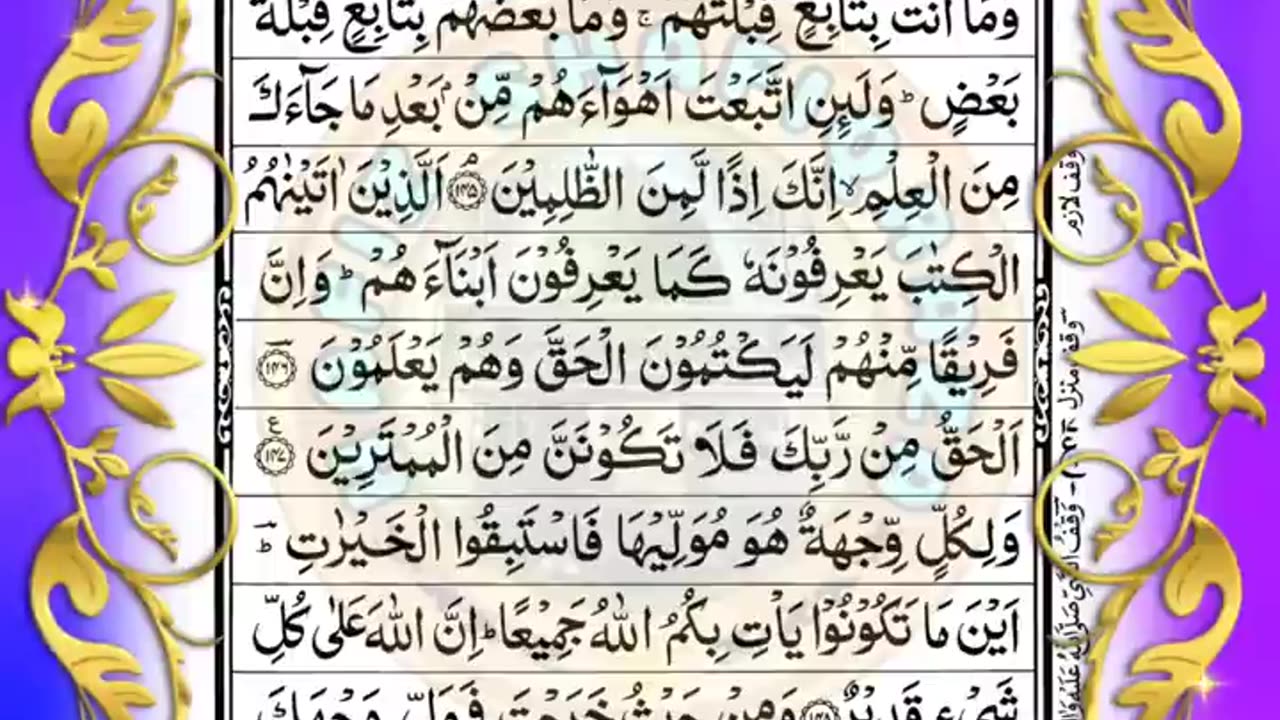 وَمَا اَنْتَ بِتَابِعٍ قِبْلَتَهُمْ ۚ وَمَا بَعْضُهُمْ بِتَابِعٍ قِبْلَةَ
بَعْضٍ ؕ وَلَئِنِ اتَّبَعْتَ اَهْوَآءَهُمْ مِّنْۢ بَعْدِ مَا جَآءَكَ
مِنَ الْعِلْمِ ۙ اِنَّكَ اِذًا لَّمِنَ الظّٰلِمِيْنَ ۘ ﴿۱۴۵﴾ اَلَّذِيْنَ اٰتَيْنٰهُمُ
الْكِتٰبَ يَعْرِفُوْنَهٗ كَمَا يَعْرِفُوْنَ اَبْنَآءَهُمْ ؕ وَاِنَّ
فَرِيْقًا مِّنْهُمْ لَيَكْتُمُوْنَ الْحَقَّ وَهُمْ يَعْلَمُوْنَ ﴿۱۴۶﴾
اَلْحَقُّ مِنْ رَّبِّكَ فَلَا تَكُوْنَنَّ مِنَ الْمُمْتَرِيْنَ ﴿۱۴۷﴾ ع
وَلِكُلٍّ وِّجْهَةٌ هُوَ مُوَلِّيْهَا فَاسْتَبِقُوا الْخَيْرٰتِ ؕ
اَيْنَ مَا تَكُوْنُوْا يَاْتِ بِكُمُ اللّٰهُ جَمِيْعًا ؕ اِنَّ اللّٰهَ عَلٰى كُلِّ
شَيْءٍ قَدِيْرٌ ﴿۱۴۸﴾ وَمِنْ حَيْثُ خَرَجْتَ فَوَلِّ وَجْهَكَ
وقف لازم
وقف منزل
وقف النبی صلی اللہ علیہ